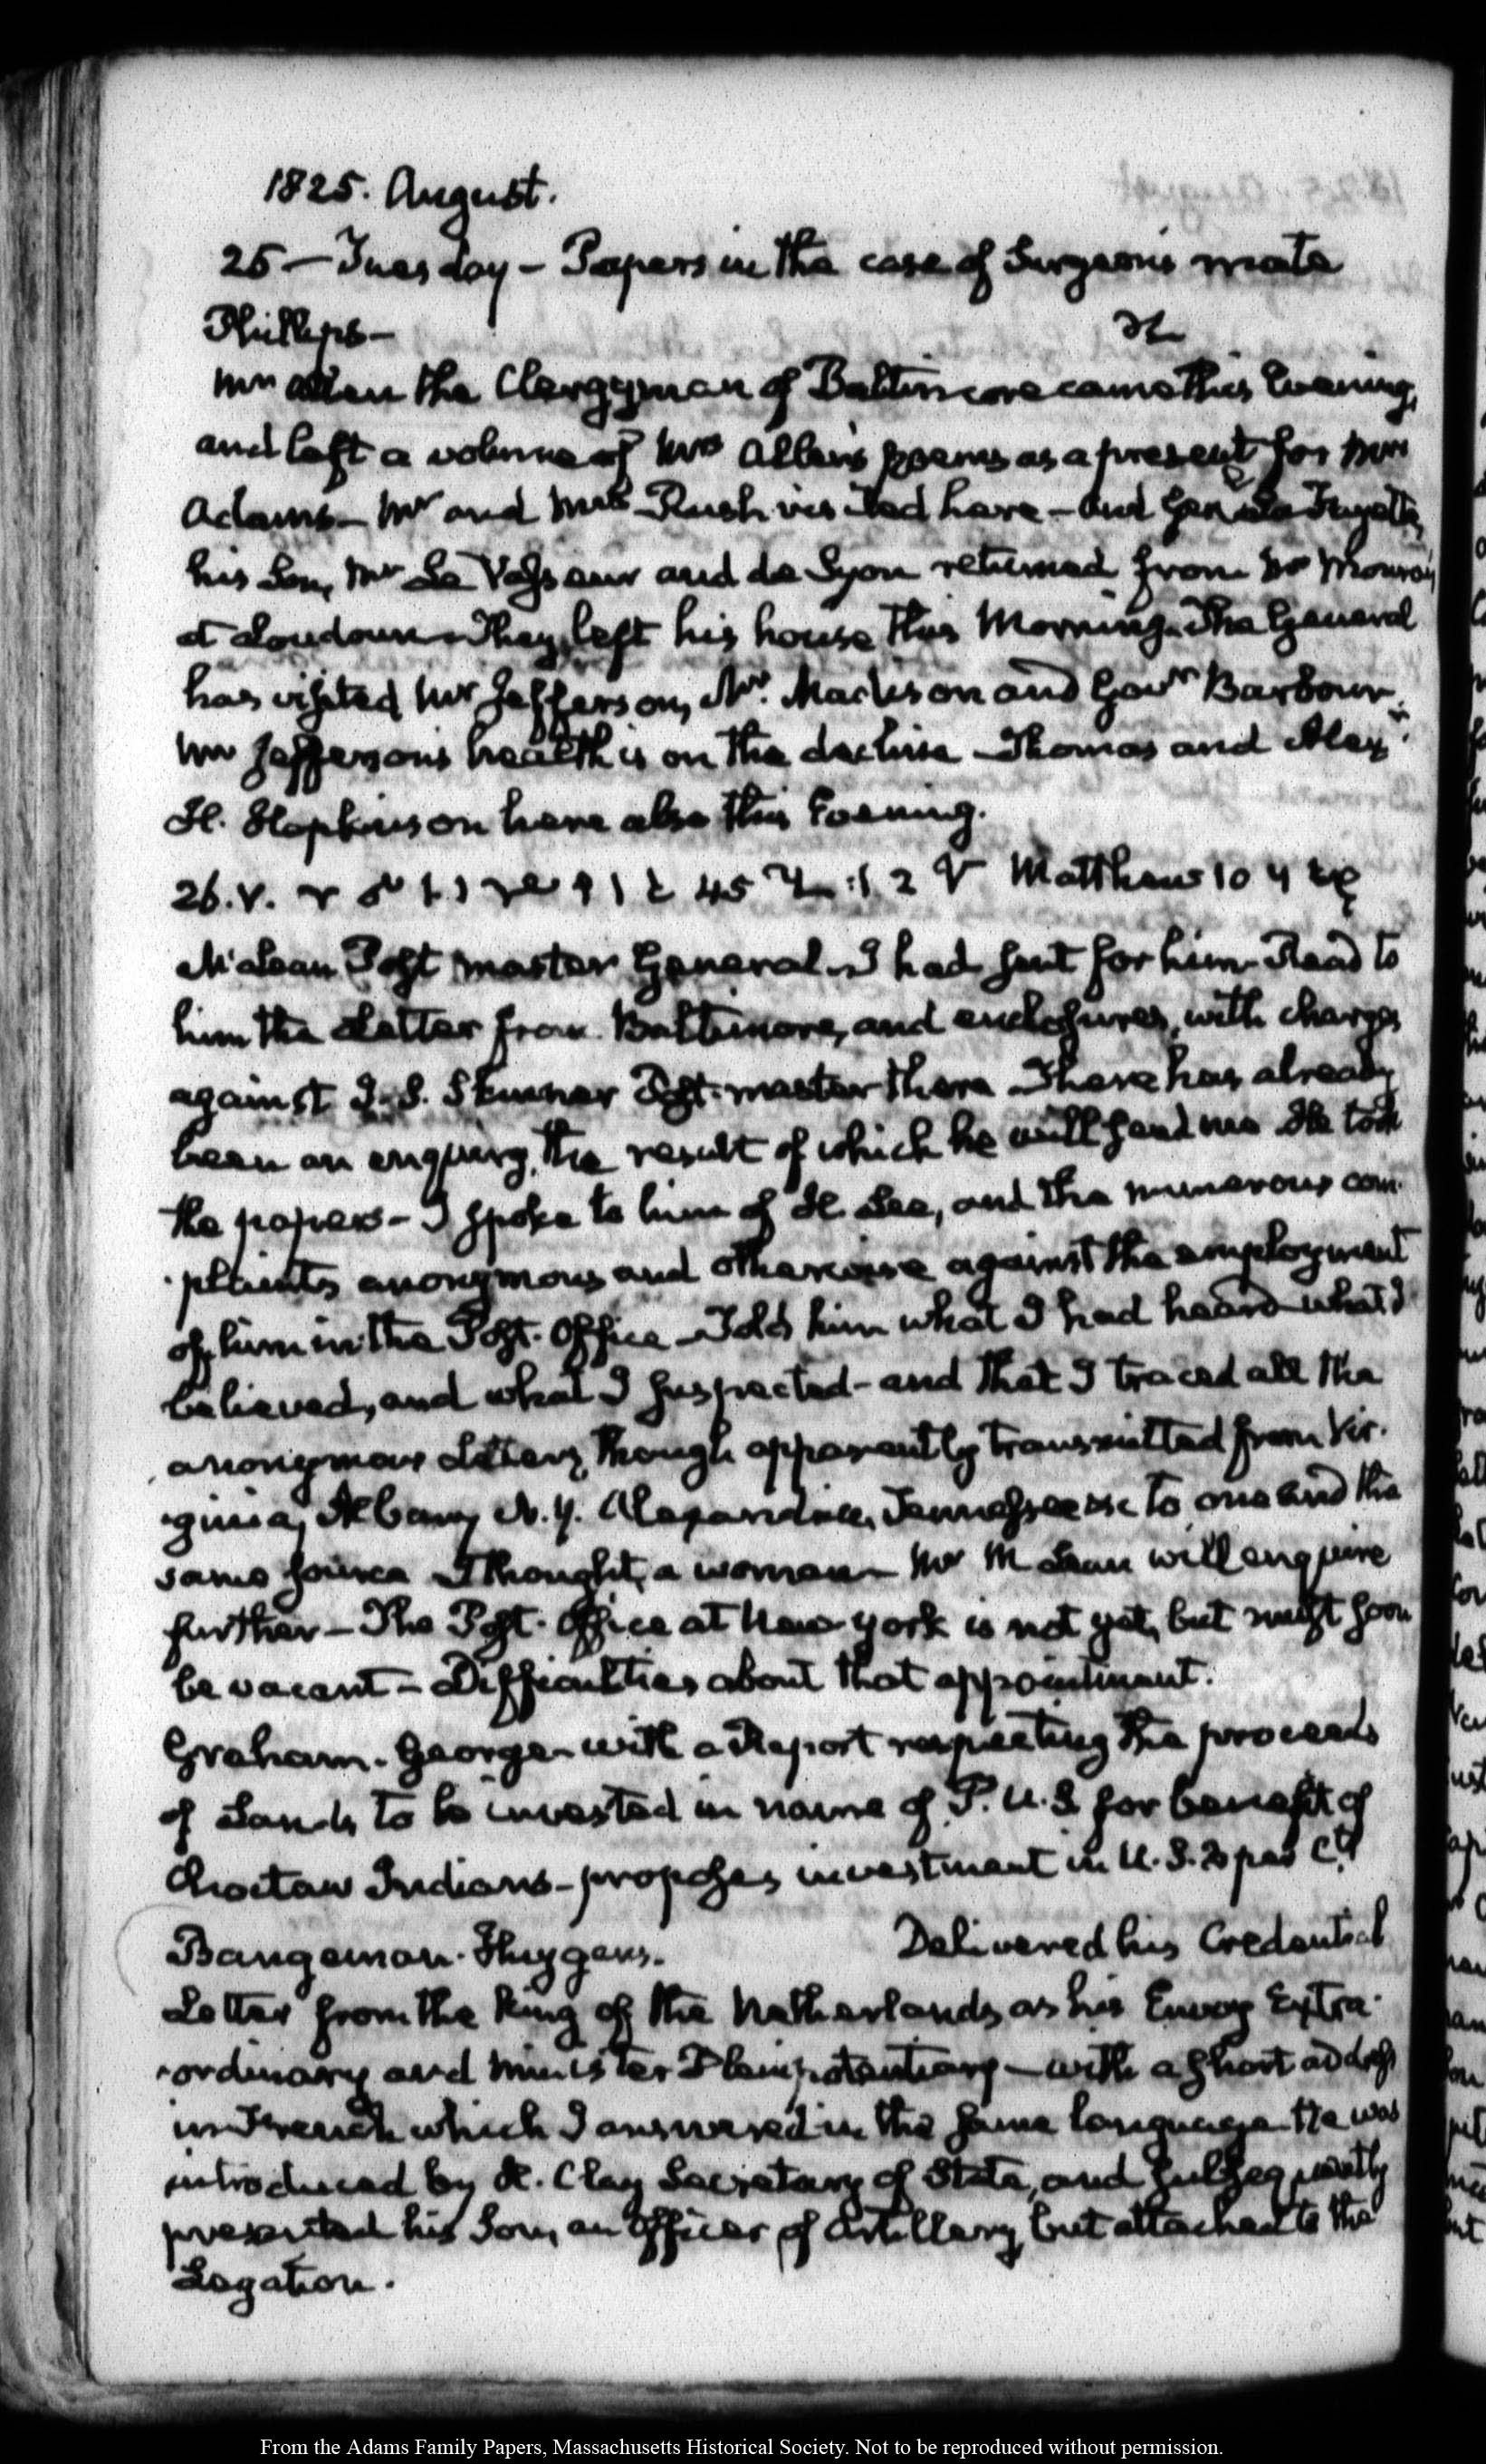 1825. August.
25 — Tuesday — Papers in the case of Surgeon's mate
Phillips —
Mr Allen the Clergyman of Baltimore came this Evening,
and left a volume of Mrs Allen's poems as a present for Mrs
Adams — Mr and Mrs Rush visited here — and Genl La Fayette,
his Son, Mr Le Vasseur and de Syon returned from Mr Monroe's
at Loudoun. They left his house this Morning. The General
has visited Mr Jefferson, Mr. Madison and Govr Barbour.
Mr Jefferson's health is on the decline — Thomas and Alexr.
H. Hopkinson here also this Evening.
26. V. 45 2 Matthew 10 4
McLean Post master General. I had sent for him. Read to
him the Letter from Baltimore, and enclosures, with charges
against J. S. Skinner Post-master there — There has already
been an enquiry, the result of which he will send me. He took
the papers — I spoke to him of H Lee, and the numerous com-
-plaints anonymous and otherwise against the employment
of him in the Post-Office — Told him what I had heard what I
believed, and what I suspected — and that I traced all the
anonymous Letters, though apparently transmitted from Vir-
-ginia, Albany N.Y. Alexandria, Tennessee &c to one and the
same source I thought, a woman — Mr McLean will enquire
further — The Post-Office at New York is not yet, but must soon
be vacant — Difficulties about that appointment.
Graham. George — with a Report respecting the proceeds
of Lands to be invested in name of P. U. S for benefit of
Choctaw Indians — proposes investment in U. S. 3 per Cts
Bangeman-Huygens. Delivered his Credential
Letter from the King of the Netherlands, as his Envoy Extra-
-ordinary and Minister Plenipotentiary — with a short address
in French which I answered in the same language. He was
introduced by H. Clay Secretary of State, and subsequently
presented his Son, an Officer of Artillery, but attached to the
Legation.
From the Adams Family Papers, Massachusetts Historical Society. Not to be reproduced without permission.